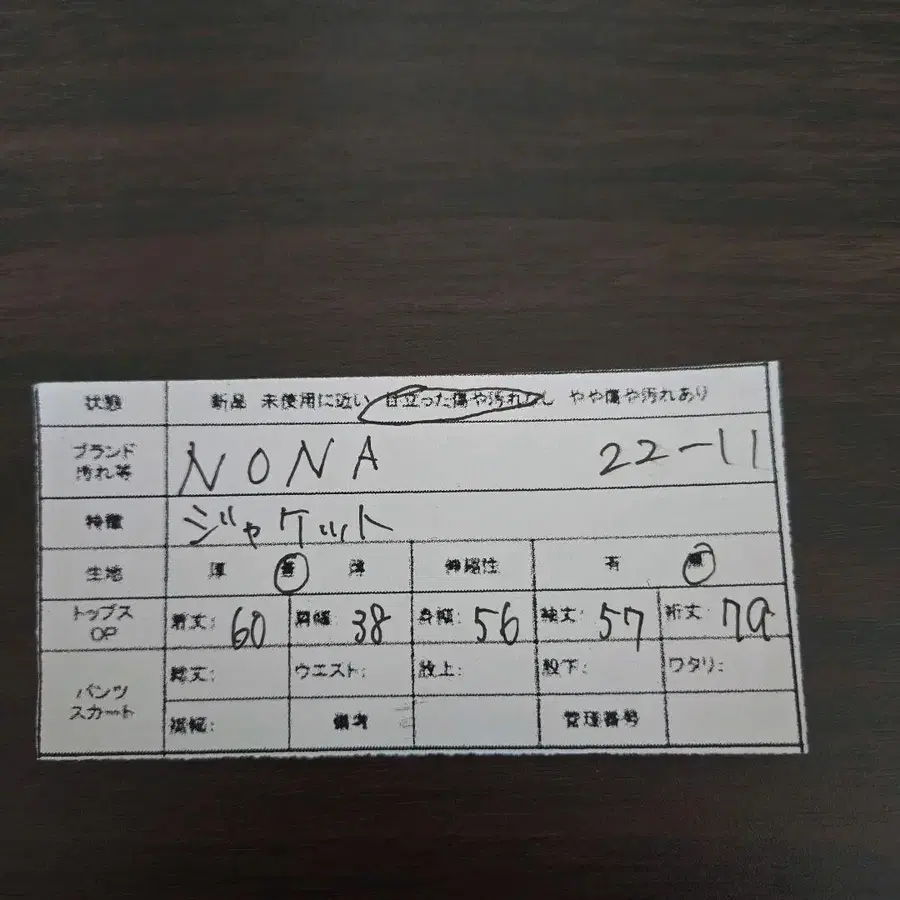 状態 新品 未使用に近い 目立った傷や汚れなし やや傷や汚れあり
ブランド
汚れ等 NONA 22-11
特徴 ジャケット
生地 厚 普 薄 伸縮性 有 無
トップス
OP 着丈: 60 肩幅: 38 身幅: 56 袖丈: 57 裄丈:
パンツ
スカート 総丈: ウエスト: 股上: 股下: ワタリ:
裾幅: 備考 管理番号